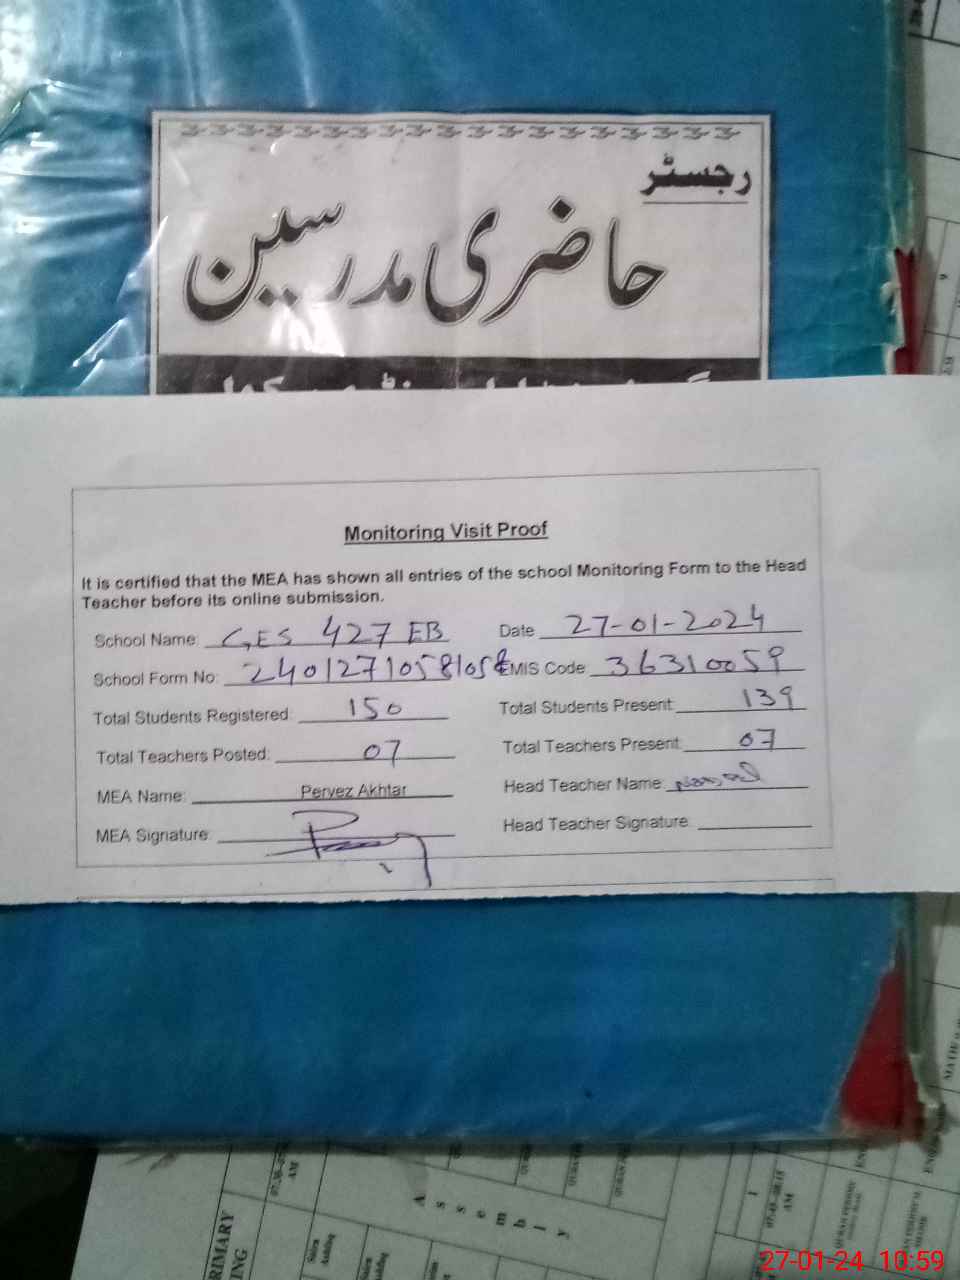 رجسٹر
حاضری مدرسین
Monitoring Visit Proof
It is certified that the MEA has shown all entries of the school Monitoring Form to the Head
Teacher before its online submission.
School Name: GES 427 EB Date 27-01-2024
School Form No: EMIS Code: 36310059
Total Students Registered: 150 Total Students Present: 139
Total Teachers Posted: 07 Total Teachers Present: 07
MEA Name: Pervez Akhtar Head Teacher Name:
MEA Signature: Head Teacher Signature:
RIMARY
07:45-08:15
AM
1
Assembly
27-01-24 10:59